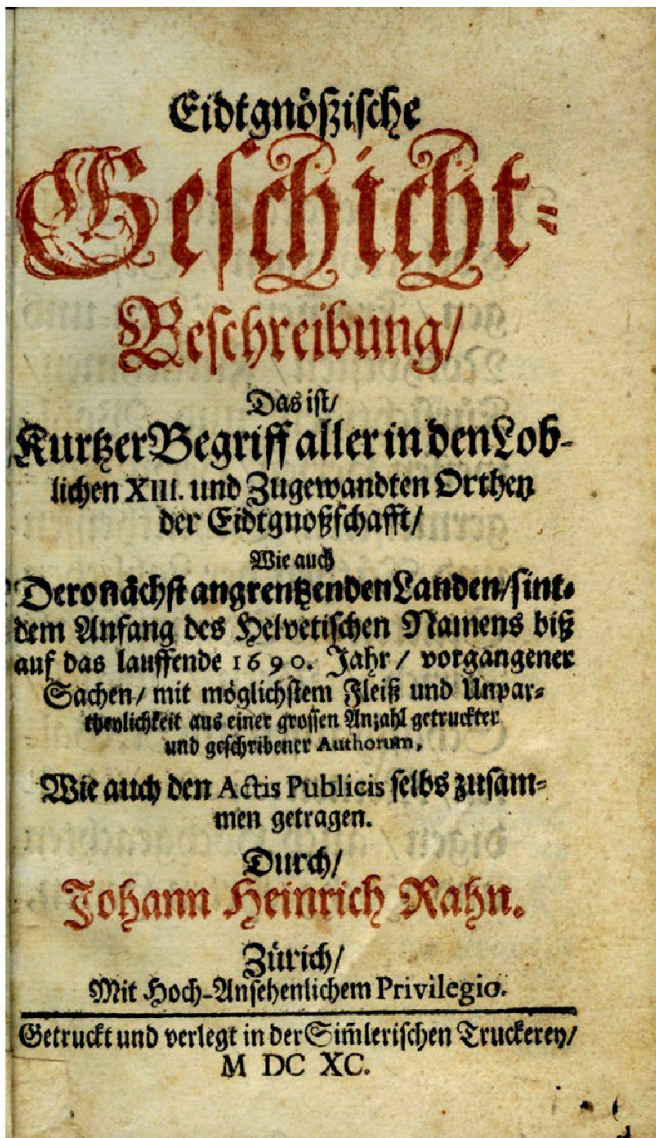 Eidtgnößische
Geschicht-
Beschreibung/
Das ist/
Kurtzer Begriff aller in den Lob-
lichen XIII. und Zugewandten Orthen
der Eidtgnoßschafft/
Wie auch
Dero nächst angrentzenden Landen/ sint-
dem Anfang des Helvetischen Namens biß
auf das lauffende 1690. Jahr/ vorgangener
Sachen/ mit möglichstem Fleiß und Unpar-
theylichkeit aus einer grossen Anzahl getruckter
und geschribener Authorum,
Wie auch den Actis Publicis selbs zusam-
men getragen.
Durch/
Johann Heinrich Rahn.
Zürich/
Mit Hoch-Ansehenlichem Privilegio.
Getruckt und verlegt in der Sim̃lerischen Truckerey/
M DC XC.